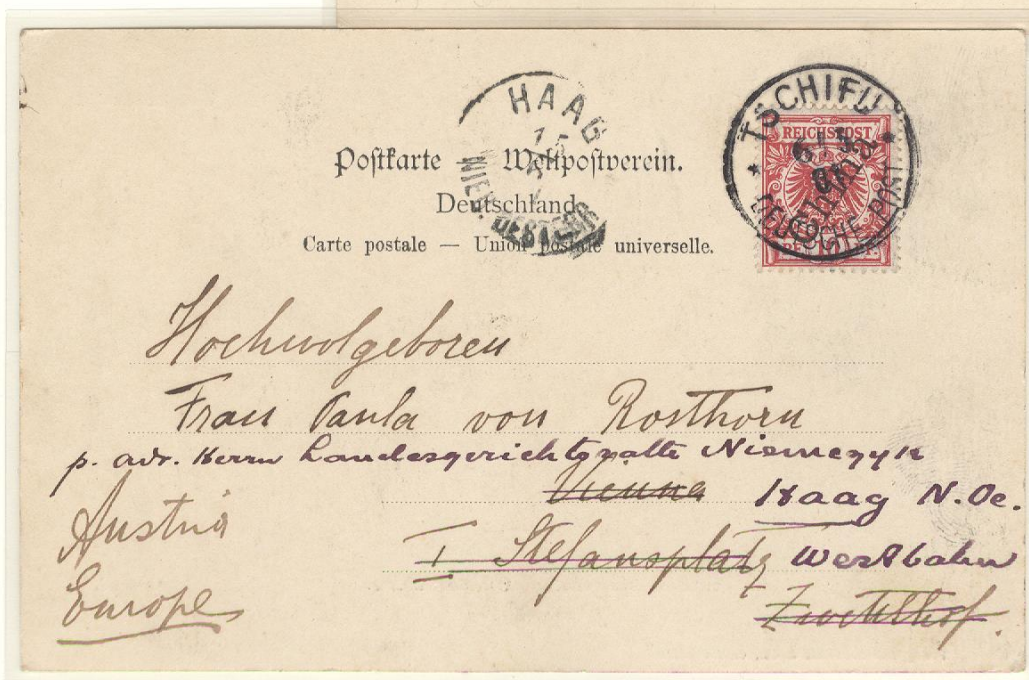 HAAG
15
NIED. OESTERR
TSCHIFU
DEUTSCHE POST
REICHSPOST
China
10
Postkarte — Weltpostverein.
Deutschland
Carte postale — Union postale universelle.
Hochwolgeboren
Frau Paula von Rosthorn
p. adr. Herrn Landesgerichtsrathe
Vienna Haag N. Oe.
Austria
I Stefansplatz Westbahn
Europe